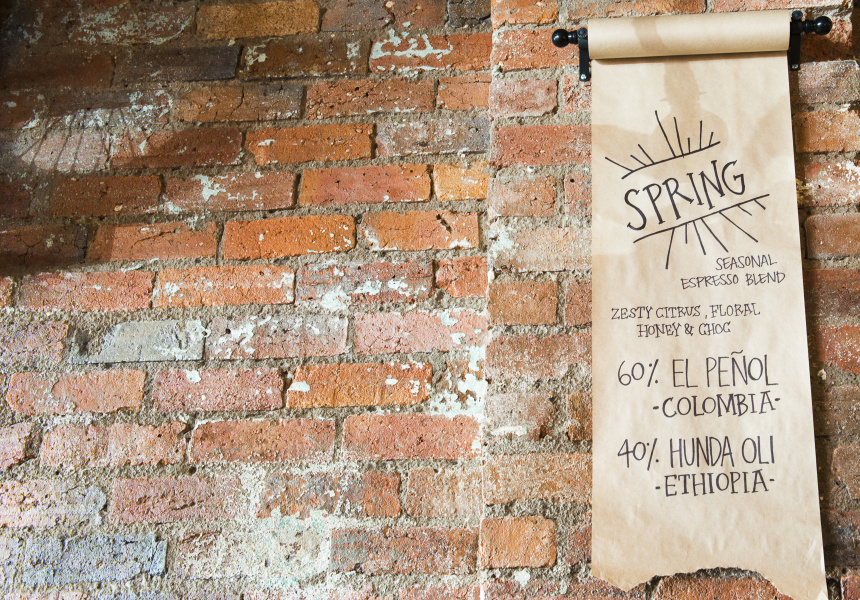 SPRING
SEASONAL
ESPRESSO BLEND
ZESTY CITRUS, FLORAL
HONEY & CHOC
60% EL PEÑOL
-COLOMBIA-
40% HUNDA OLI
-ETHIOPIA-